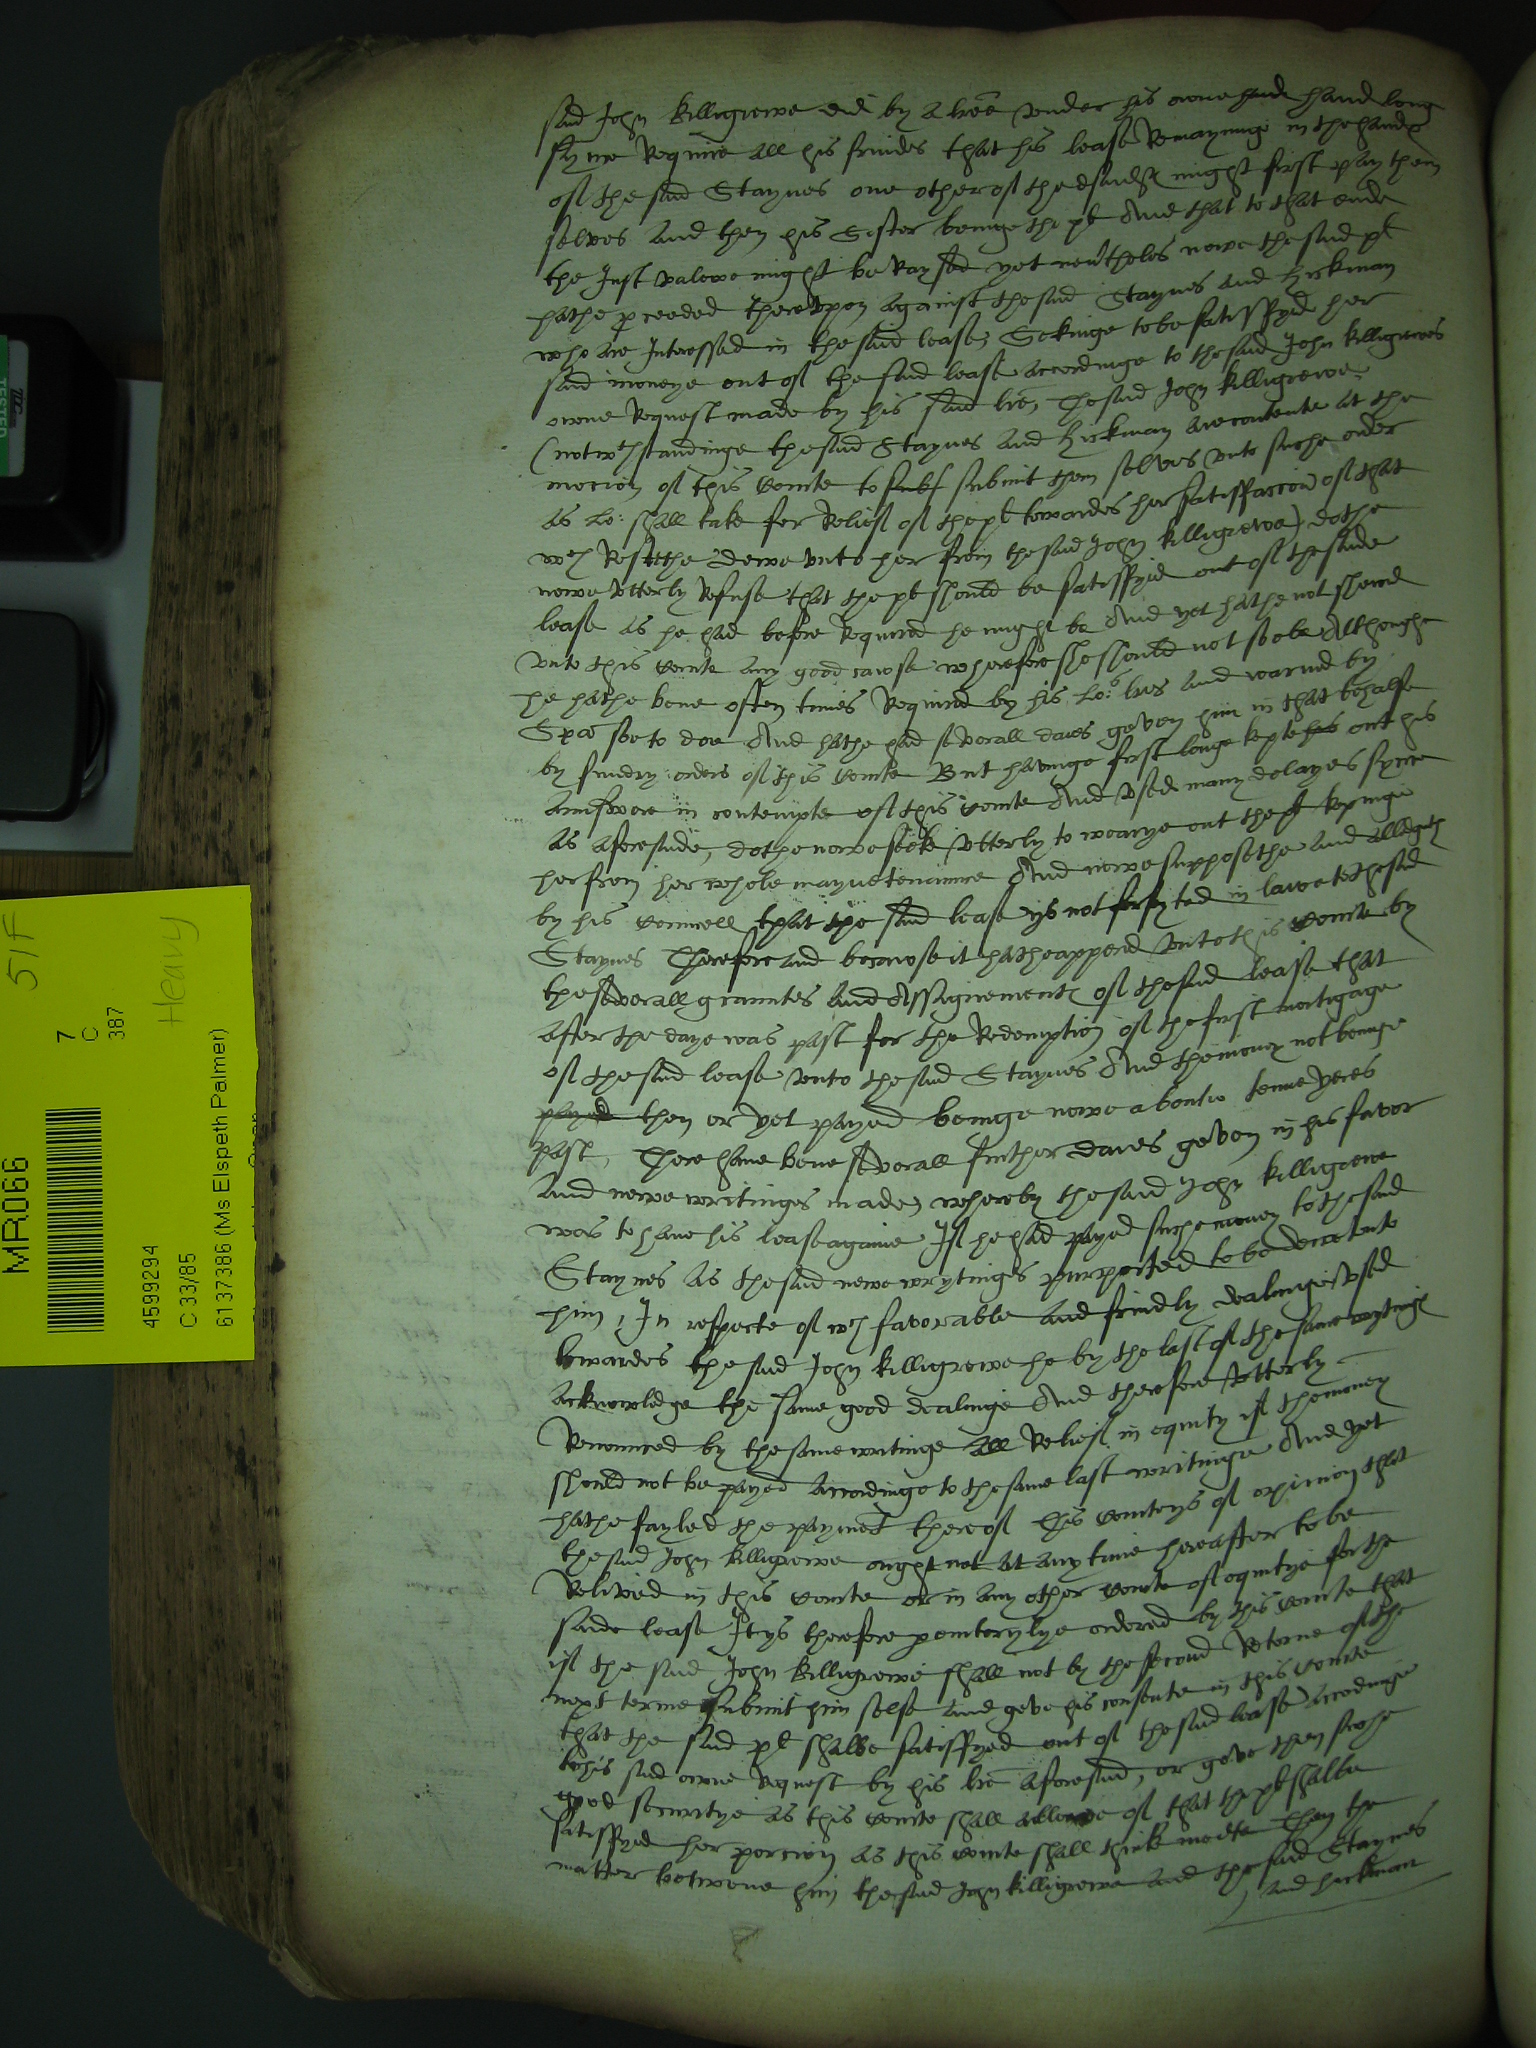 said John Killigrewe did by a lre under his owne hande hand long
syns Require all his frindes that his lease Remayninge in the handℯ
of the said Staynes one other of the might first pay them
selves And then his Sister beinge the pl And that to that ende
the Just valewe might be Raysed yet nevtheles nowe the said pl
hathe pceeded therevpon against the said Staynes and Hickman
who are Interessed in the said lease, Sekinge to be satisffyed her
said moneye out of the said lease accordinge to the said John Killigrewes
owne Request made by his said lre, The said John Killigrewe
(notwthstandinge the said Staynes and Hickman are contente at the
mocion of this Courte to subs submit them selves unto suche order
as Lo: shall take for Relief of the pl towardes her satisfaccion of that
wch Restethe dewe unto her from the said John Killigrewe) dothe
nowe vtterly Refuse that the pl should be satisfyed out of the saide
lease as he had before Required he might be And yet hathe not shewed
vnto this Courte any good cawse wherefore she should not so be Althoughe
he hathe bene often times Required by his Lo:s lres and warned by
Spa soe to doe And hathe had severall daies geven him in that behalfe
by sundry orders of this Courte But havinge first longe kepte his out his
Aunswere in contempte of this Courte And vsed many delayes synce
as aforesaide, dothe nowe seeke vtterly to wearye out the pl kepinge
her from her whole mayntenaunce And nowe supposethe and alledgeth
by his Councell that the said lease ys not forfyted in lawe to the said
Staynes Therefore and becawse it hathe appered vnto this Courte by
the severall grauntes and Assignementℯ of the said lease that
after the daye was past for the Redemption of the first mortgage
of the said lease vnto the said Staynes And the money not beinge
payed then or yet payed beinge nowe aboute tenne yeres
past, There have bene severall further daies geven in his favor
and newe writinges made, whereby the said John Killigrewe
was to have his lease againe If he had payed suche money to the said
Staynes as the said newe wrytinges purported to be dewe vnto
him, In respecte of wch favorable and frindly dealinges vsed
towardes the said John Killigrewe he by the last of the same wrytingℯ
Acknowledge the same good dealinge And therefore vtterly
Renounced by the same writinge All Relief in equity if the money
should not be payed Accordinge to the same last writinge And yet
hathe fayled the paymet thereof This Courte ys of opinion that
the said John Killigrewe ought not at any time hereafter to be
Relived in this Courte or in any other Courte of equitye for the
saide lease It ys therefore pemterylye ordered by this Courte that
if the said John Killigrewe shall not by the second Retorne of the
next terme submit him selfe and geve his consente in this Courte
that the said pl shalbe satisffyed out of the said lease accordinge
to his said owne Request by his lre aforesaid, or geve then suche
good securitye as this Courte shall allowe of that the pl shalbe
satisffyed her porcion as this Courte shall think meete Then the
matter betwene him the said John Killigrewe and the said Staynes
and Hickman
51F
Heavy
7
C
387
MR066
4599294
C 33/85
6137386 (Ms Elspeth Palmer)
TESTED